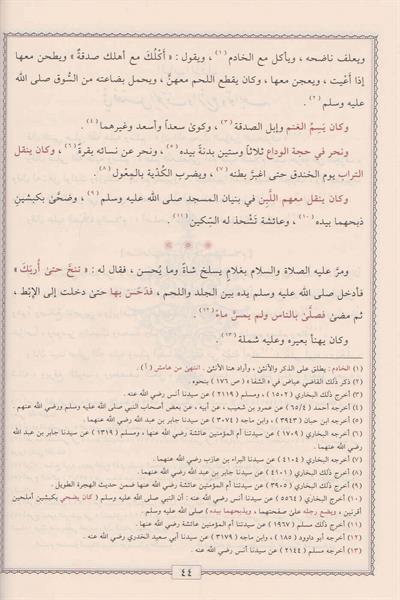 ويعلف ناضحه ، ويأكل مع الخادم (١) ، ويقول : « أَكْلُكَ مع أهلك صدقةٌ » ويطحن معها
إذا أعْيت ، ويعجن معها ، وكان يقطع اللحم معهنَّ ، ويحمل بضاعته من السُّوق صلى الله
عليه وسلم (٢) .
وكان يَسِمُ الغنم وإبل الصدقة (٣) ، وكوىٰ سعداً وأسعد وغيرهما (٤) .
ونحر في حجة الوداع ثلاثاً وستين بدنةً بيده (٥) ، ونحر عن نسائه بقرةً (٦) ، وكان ينقل
التراب يوم الخندق حتى اغبرَّ بطنه (٧) ، ويضرب الكُدْية بالمِعْول (٨) .
وكان ينقل معهم اللَّبِن في بنيان المسجد صلى الله عليه وسلم (٩) ، وضحَّىٰ بكبشين
ذبحهما بيده (١٠) ، وعائشة تَشْحَذ له السِّكين (١١) .
ومرَّ عليه الصلاة والسلام بغلامٍ يسلخ شاةً وما يُحسن ، فقال له : « تنحَّ حتىٰ أُرِيَكَ »
فأدخل صلى الله عليه وسلم يده بين الجلد واللحم ، فدَحَسَ بها حتىٰ دخلت إلى الإبْط ،
ثم مضىٰ فصلَّىٰ بالناس ولم يمسَّ ماءً (١٢) .
وكان يهنأ بعيره وعليه شملة (١٣) .
(١) الخادم : يطلق على الذكر والأنثىٰ ، وأراد هنا الأنثىٰ . انتهىٰ من هامش ( أ ) .
(٢) ذكر ذلك القاضي عياض في « الشفا » ( ص ١٧٦ ) بنحوه .
(٣) أخرج ذلك البخاري ( ١٥٠٢ ) ، ومسلم ( ٢١١٩ ) عن سيدنا أنس رضي الله عنه .
(٤) أخرجه أحمد ( ٦٥/٤ ) عن عمرو بن شعيب ، عن أبيه ، عن بعض أصحاب النبي صلى الله عليه وسلم ورضي الله عنهم .
(٥) أخرجه ابن حبان ( ٣٩٤٣ ) ، وابن ماجه ( ٣٠٧٤ ) عن سيدنا جابر بن عبد الله رضي الله عنهما .
(٦) أخرجه البخاري ( ١٧٠٩ ) عن سيدتنا أم المؤمنين عائشة رضي الله عنها ، ومسلم ( ١٣١٩ ) عن سيدنا جابر بن عبد الله
رضي الله عنهما .
(٧) أخرجه البخاري ( ٤١٠٤ ) عن سيدنا البراء بن عازب رضي الله عنهما .
(٨) أخرج ذلك البخاري ( ٤١٠١ ) عن سيدنا جابر بن عبد الله رضي الله عنهما .
(٩) أخرج ذلك البخاري ( ٣٩٠٥ ) عن سيدتنا أم المؤمنين عائشة رضي الله عنها ضمن حديث الهجرة الطويل .
(١٠) أخرج البخاري ( ٥٥٦٤ ) عن سيدنا أنس رضي الله عنه : أن النبي صلى الله عليه وسلم ( كان يضحي بكبشين أملحين
أقرنين ، ويضع رجله علىٰ صفحتهما ، ويذبحهما بيده ) صلى الله عليه وسلم .
(١١) أخرج ذلك مسلم ( ١٩٦٧ ) عن سيدتنا أم المؤمنين عائشة رضي الله عنها .
(١٢) أخرجه أبو داوود ( ١٨٥ ) ، وابن ماجه ( ٣١٧٩ ) عن سيدنا أبي سعيد الخدري رضي الله عنه .
(١٣) أخرجه مسلم ( ٢١٤٤ ) عن سيدنا أنس رضي الله عنه .
٤٤